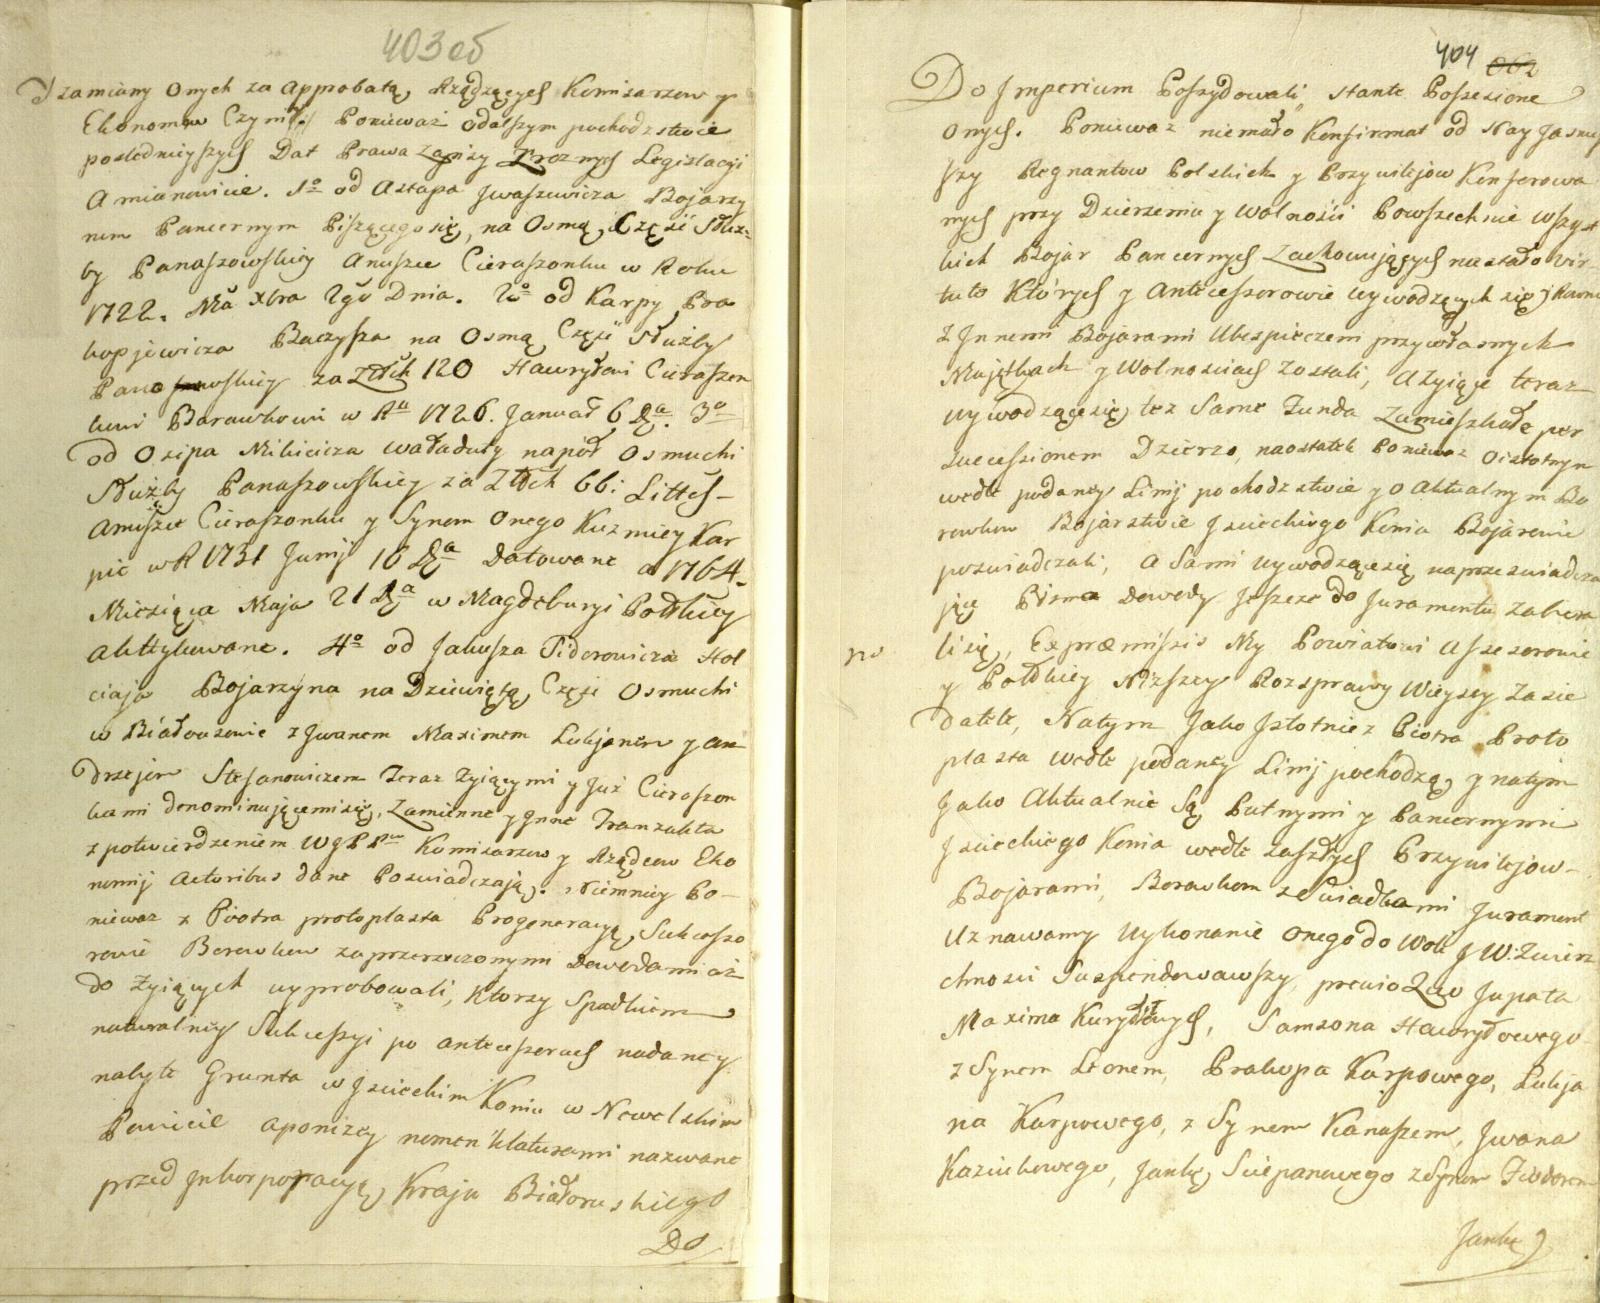 403об
Y zamiany onych za Approbatą Rządzących Komisarzow y
Ekonomow Czynić Ponieważ odalszym pochodzstwie
poslednieyszych Dat Prawa Legislacyi
A mianowicie. 1o od Astapa Jwaszewicza Bojarzy
nem Pancernym Piszącego się, na Osmą Część Służ=
by Panaszowskiey Anuszce Cieraszonku w Roku
1722. Ma Xbra 2go Dnia. 2o od Karpy Pra
kopjewicza Baczysza na Osmą Część Służby
Panaszowskiey za Złłch 120 Hawryłowi Cieraszon
kowi Barawkowi w Ru 1726. Januar 6 Da. 3o
od Osipa Mikicicza Waładuty napół Osmuchi
Służby Panaszowskiey za Złłch 66: Littch –
Amiszce Cieraszonku y Synem Onego Kuzmiey Kar
pie w R 1731 Junij 16 Da Datowane a 1764.
Miesiąca Maja 21 Da w Magdeburyi Połłckiey
Aktykowane. 4o od Jakusza Fidorowicza Hol
ciaja Bojarzyna na Dziewiątą Częsc Osmuchi
w Białorusowie z Jwanem Maximem Lukjanem y An
drzejem Stefanowiczem Teraz Zyiącymi y Już Cieraszon
kami denominującemi się, Zamienne y Jnne Tranzakta
z potwierdzeniem WgPP Komisarzow y Rządcow Eko
nomij Actoribus dane Poswiadczają. Niemniey Po–
niewaz z Piotra protoplasta Progeneracyą, Sukcesso
rowie Borowkow zaprzerzeczonymi Dowodami aż
do Zyiących wyprobowali, Ktorzy Spadkiem
naturalney Sukcessyi po Antecessorach nadaney
nabyte Grunta w Jsieckim Koniu w Newelskim
Powiecie aponizey nomenklaturami nazwane
przed Jnkorporacyą Kraju Białoruskiego
Do
404 662
Do Jmperium Possydowali, stante Possesione
Onych. Poniewaz niemało Konfirmat od Nay Jasniey
szy Regnantow Polskich y Przywilejow Konferowa
nych przy Dzierzeniu y Wolności Powszechnie wszyst
kich Bojar Pancernych Zachowujących nastało vir–
tuto Których y Antecessorowie wywodzących się y Rowno
z Jnnemi Bojarami Ubespieczeni przywłasnych
Majątkach y Wolnosciach Zostali, A Zyiące teraz
wywodzące się, tez Same Funda Zamieszkałe per
Successionem Dzierzo, naostatek Poniewaz oistotnym
wedle podaney Linij pochodzstwie y o Aktualnym Bo
rowkow Bojarstwie Jsieckiego Konia Bojarowie
poswiadczali, A Sami wywodzące się naprzeswiadcza
jące Pisma Dowody Jeszcze do Juramentu Zabiera
no li się, Ex præmissis My Powiatowi Assessorowie
y Połłckiey Niższey Rozsprawy Wieysey Zasie
datele, Natym Jako Jstotnie z Piotra Proto
plasta wedle podaney Linij pochodzą, y natym
Jako Aktualnie Są Putnymi y Pancernymi
Jsieckiego Konia wedle zaszłych Przywilejow–
Bojarami, Borowkom zeSwiadkami Jurament
Uznawamy Wykonanie Onego do Woli J W: Zwierz
chności Suspendowawszy, prewio Quo Jupata
Maxima Kuryłowych, Samsona Hawryłowego
z Synem Leonem, Prakopa Karpowego, Lukja
na Karpowego, z Synem Kanaszem, Jwana
Kaziukowego, Jankę Sciepanowego zSynem Fiedorem
Jankę